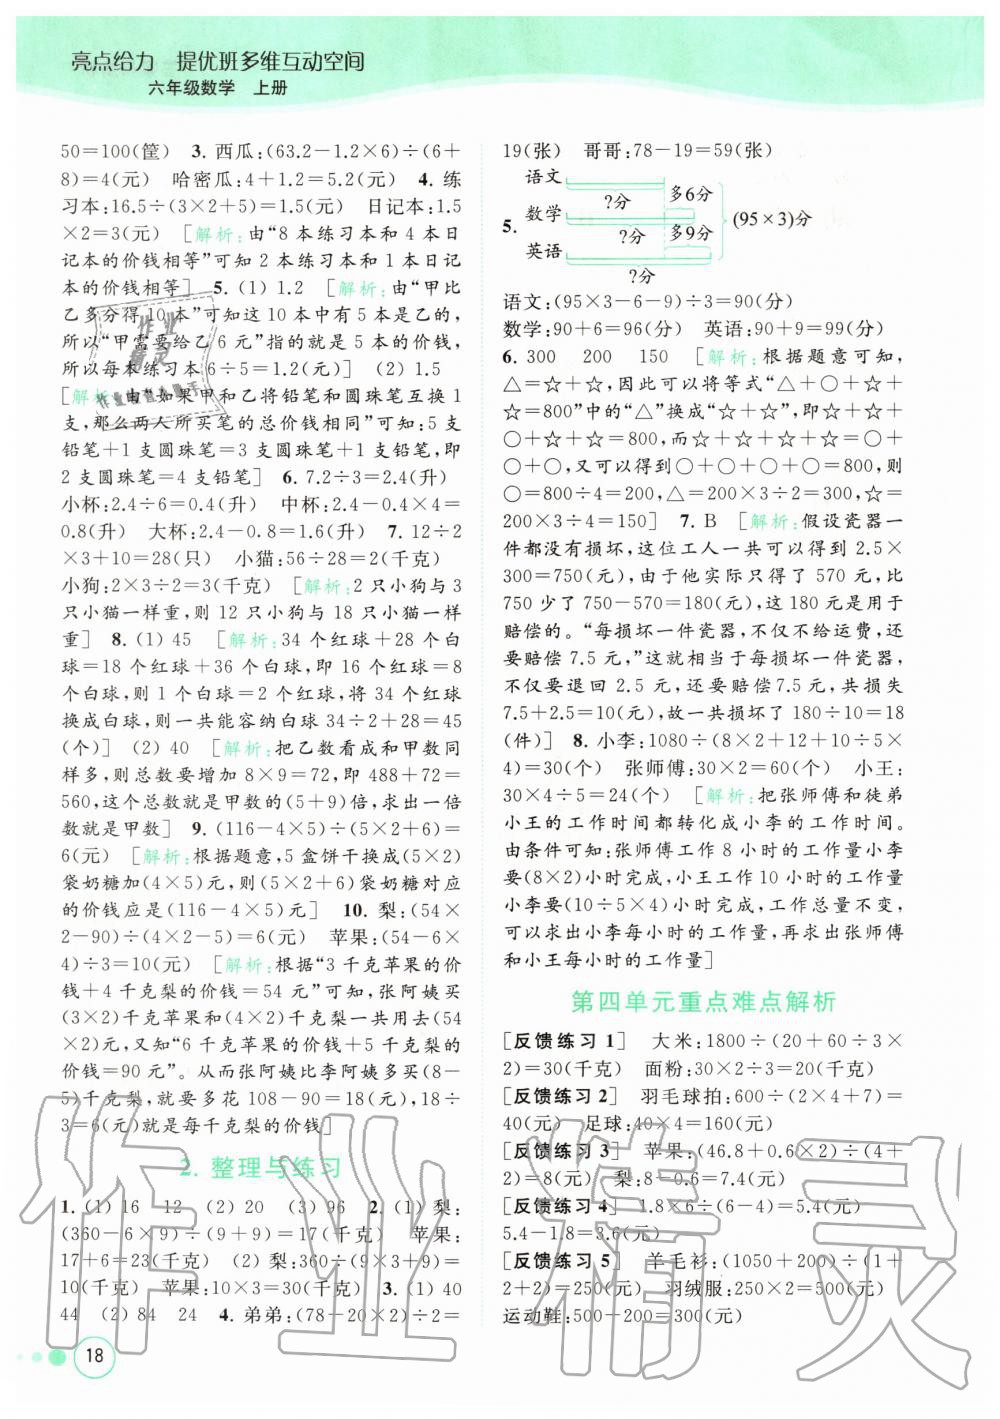 亮点给力 提优班多维互动空间
六年级数学 上册
50＝100(筐) 3. 西瓜:(63.2－1.2×6)÷(6＋
8)＝4(元) 哈密瓜:4＋1.2＝5.2(元) 4. 练
习本:16.5÷(3×2＋5)＝1.5(元) 日记本:1.5
×2＝3(元) [解析:由“8 本练习本和 4 本日
记本的价钱相等”可知 2 本练习本和 1 本日记
本的价钱相等] 5. (1) 1.2 [解析:由“甲比
乙多分得 10 本”可知这 10 本中有 5 本是乙的,
所以“甲需要给乙 6 元”指的就是 5 本的价钱,
所以每本练习本 6÷5＝1.2(元)] (2) 1.5
[解析:由“如果甲和乙将铅笔和圆珠笔互换 1
支,那么两人所买笔的总价钱相同”可知:5 支
铅笔＋1 支圆珠笔＝3 支圆珠笔＋1 支铅笔,即
2 支圆珠笔＝4 支铅笔] 6. 7.2÷3＝2.4(升)
小杯:2.4÷6＝0.4(升) 中杯:2.4－0.4×4＝
0.8(升) 大杯:2.4－0.8＝1.6(升) 7. 12÷2
×3＋10＝28(只) 小猫:56÷28＝2(千克)
小狗:2×3÷2＝3(千克) [解析:2 只小狗与 3
只小猫一样重,则 12 只小狗与 18 只小猫一样
重] 8. (1) 45 [解析:34 个红球＋28 个白
球＝18 个红球＋36 个白球,即 16 个红球＝8
个白球,则 1 个白球＝2 个红球,将 34 个红球
换成白球,则一共能容纳白球 34÷2＋28＝45
(个)] (2) 40 [解析:把乙数看成和甲数同
样多,则总数要增加 8×9＝72,即 488＋72＝
560,这个总数就是甲数的(5＋9)倍,求出一倍
数就是甲数] 9. (116－4×5)÷(5×2＋6)＝
6(元) [解析:根据题意,5 盒饼干换成(5×2)
袋奶糖加(4×5)元,则(5×2＋6)袋奶糖对应
的价钱应是(116－4×5)元] 10. 梨:(54×
2－90)÷(4×2－5)＝6(元) 苹果:(54－6×
4)÷3＝10(元) [解析:根据“3 千克苹果的价
钱＋4 千克梨的价钱＝54 元”可知,张阿姨买
(3×2)千克苹果和(4×2)千克梨一共用去(54
×2)元,又知“6 千克苹果的价钱＋5 千克梨的
价钱＝90 元”。从而张阿姨比李阿姨多买(8－
5)千克梨,就要多花 108－90＝18(元),18÷
3＝6(元)就是每千克梨的价钱]
2. 整理与练习
1. (1) 16 12 (2) 20 (3) 96 2. (1) 梨:
(360－6×9)÷(9＋9)＝17(千克) 苹果:
17＋6＝23(千克) (2) 梨:360÷(9×3＋9)＝
10(千克) 苹果:10×3＝30(千克) 3. (1) 40
44 (2) 84 24 4. 弟弟:(78－20×2)÷2＝
19(张) 哥哥:78－19＝59(张)
5.
语文 ?分 多6分
数学 ?分 多9分 (95×3)分
英语 ?分
语文:(95×3－6－9)÷3＝90(分)
数学:90＋6＝96(分) 英语:90＋9＝99(分)
6. 300 200 150 [解析:根据题意可知,
△＝☆＋☆,因此可以将等式“△＋○＋☆＋
☆＝800”中的“△”换成“☆＋☆”,即☆＋☆＋
○＋☆＋☆＝800,而☆＋☆＋☆＋☆＝○＋
○＋○,又可以得到○＋○＋○＋○＝800,则
○＝800÷4＝200,△＝200×3÷2＝300,☆＝
200×3÷4＝150] 7. B [解析:假设瓷器一
件都没有损坏,这位工人一共可以得到 2.5×
300＝750(元),由于他实际只得了 570 元,比
750 少了 750－570＝180(元),这 180 元是用于
赔偿的。“每损坏一件瓷器,不仅不给运费,还
要赔偿 7.5 元,”这就相当于每损坏一件瓷器,
不仅要退回 2.5 元,还要赔偿 7.5 元,共损失
7.5＋2.5＝10(元),故一共损坏了 180÷10＝18
(件)] 8. 小李:1080÷(8×2＋12＋10÷5×
4)＝30(个) 张师傅:30×2＝60(个) 小王:
30×4÷5＝24(个) [解析:把张师傅和徒弟
小王的工作时间都转化成小李的工作时间。
由条件可知:张师傅工作 8 小时的工作量小李
要(8×2)小时完成,小王工作 10 小时的工作量
小李要(10÷5×4)小时完成,工作总量不变,
可以求出小李每小时的工作量,再求出张师傅
和小王每小时的工作量]
第四单元重点难点解析
[反馈练习 1] 大米:1800÷(20＋60÷3×
2)＝30(千克) 面粉:30×2÷3＝20(千克)
[反馈练习 2] 羽毛球拍:600÷(2×4＋7)＝
40(元) 足球:40×4＝160(元)
[反馈练习 3] 苹果:(46.8＋0.6×2)÷(4＋
2)＝8(元) 梨:8－0.6＝7.4(元)
[反馈练习 4] 1.8×6÷(6－4)＝5.4(元)
5.4－1.8＝3.6(元)
[反馈练习 5] 羊毛衫:(1050＋200)÷(1＋
2＋2)＝250(元) 羽绒服:250×2＝500(元)
运动鞋:500－200＝300(元)
18
作业精灵